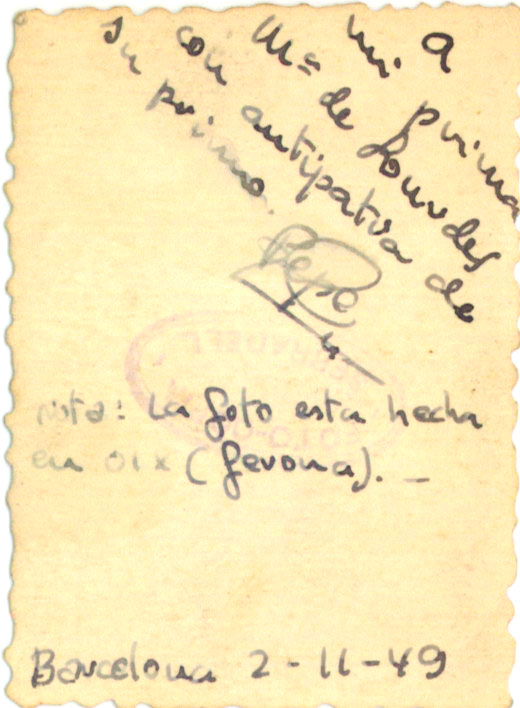 a
mi prima
Mª de Lourdes
con antipatia de
su primo.
Pepe
nota: La foto esta hecha
en Oix (Gerona). _
Barcelona 2-11-49